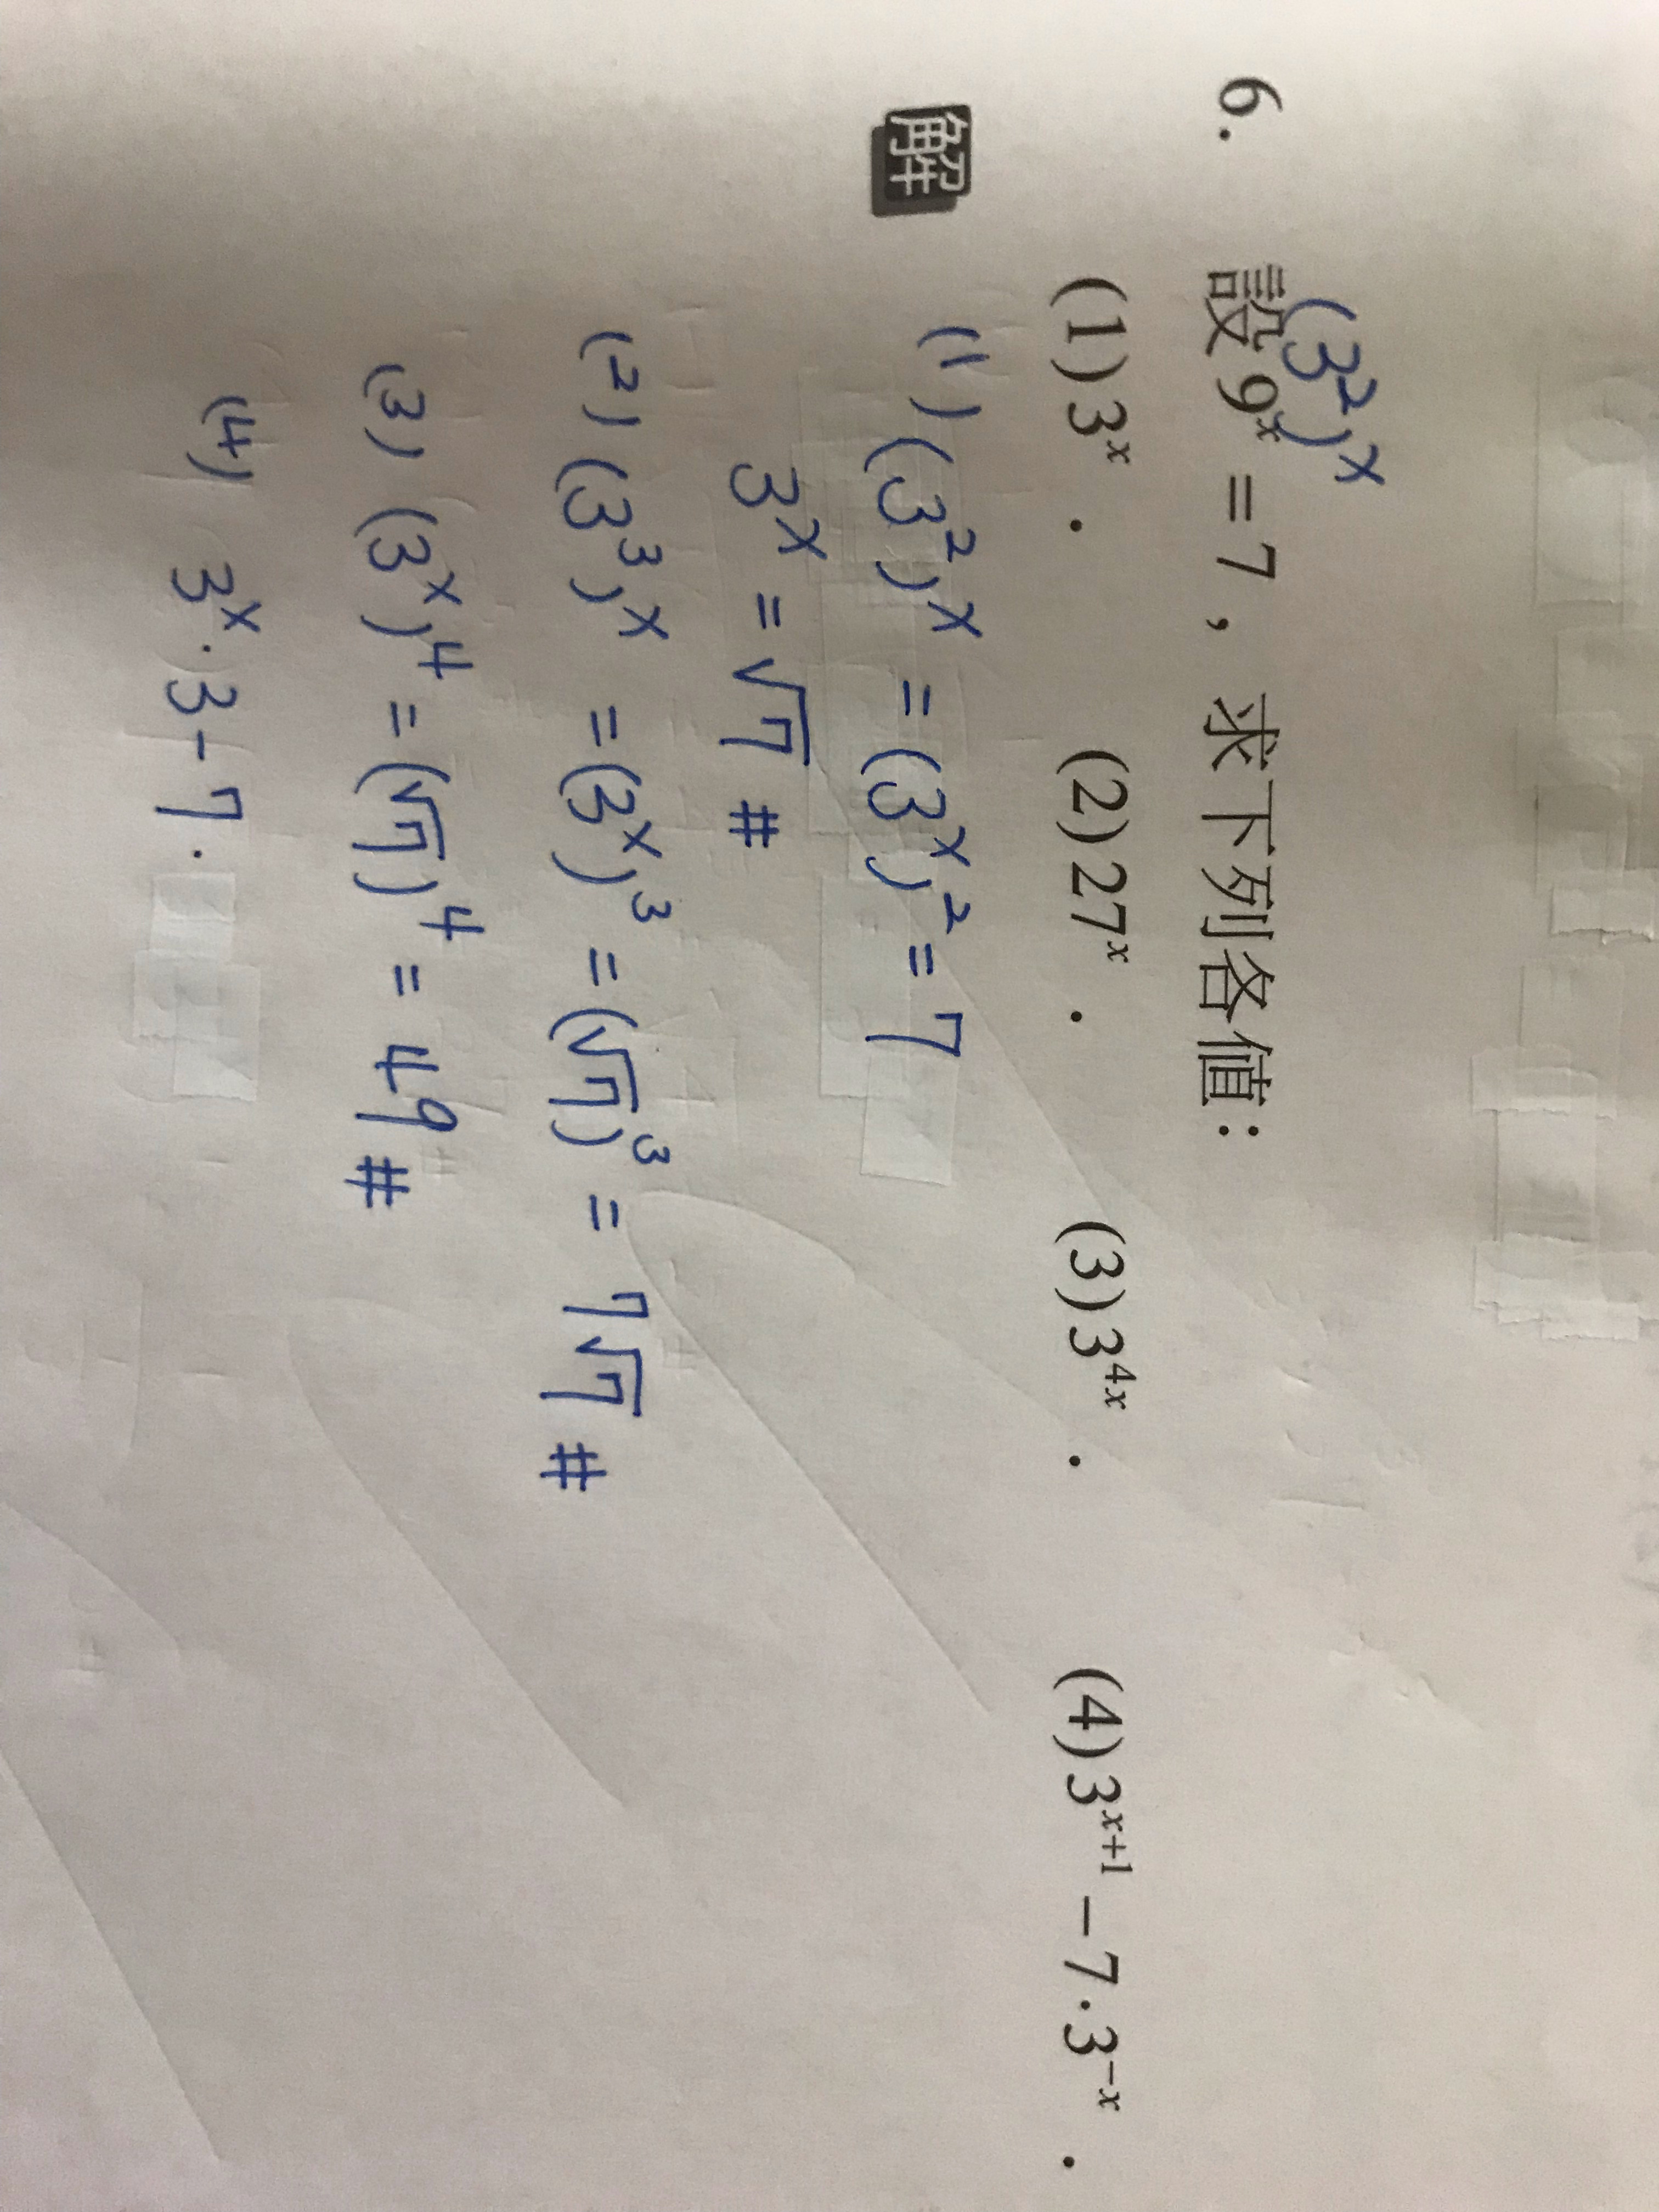 (3²)ˣ
6. 設 9ˣ = 7，求下列各值：
(1) 3ˣ． (2) 27ˣ． (3) 3⁴ˣ． (4) 3ˣ⁺¹ − 7·3⁻ˣ．
解
(1) (3²)ˣ = (3ˣ)² = 7
3ˣ = √7 #
(2) (3³)ˣ = (3ˣ)³ = (√7)³ = 7√7 #
(3) (3ˣ)⁴ = (√7)⁴ = 49 #
(4) 3ˣ·3 − 7·